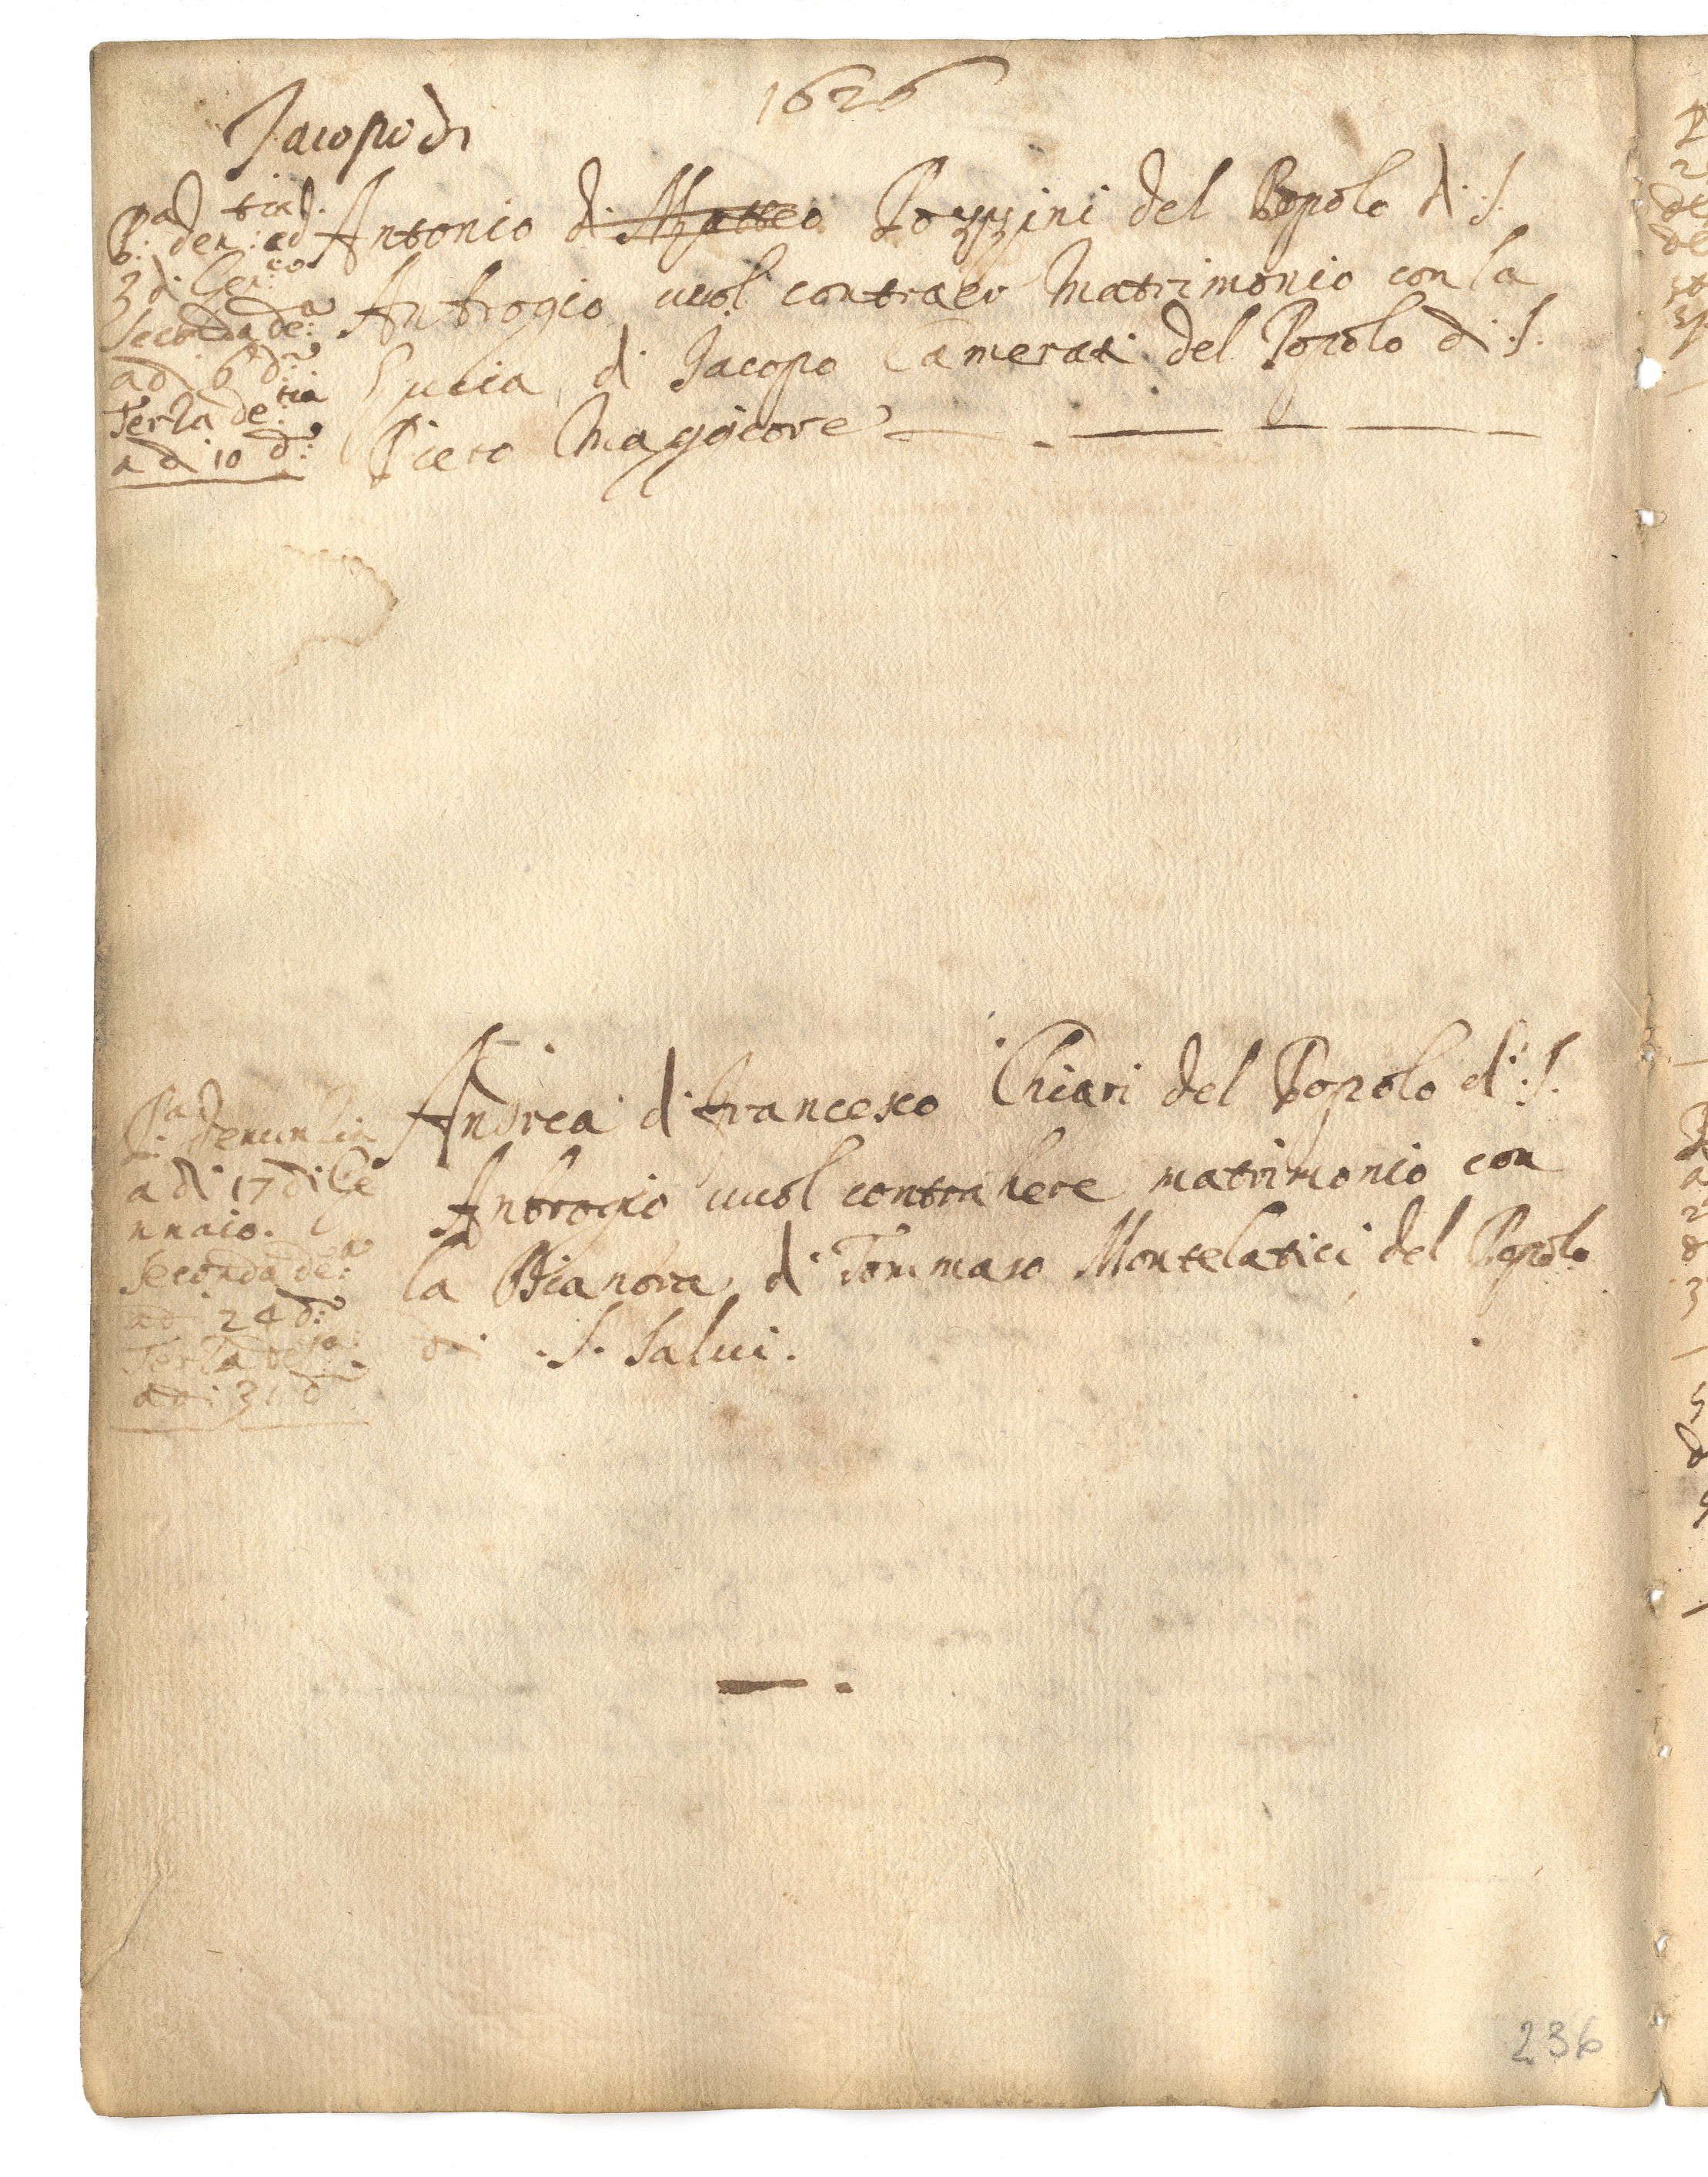 1626
Jacopo di
P.a den:tia adi
3 di Gen:co
Seconda de:a
adi 6 d:o
Terza de:tia
adi 10 d:o
Antonio di Matteo Pozzini del Popolo di S.
Anbrogio vuol contraer Matrimonio con la
Lucia di Jacopo Camerati del Popolo di S.
Piero Maggiore
P.a denunzia
adi 17 di Ge
nnaio.
Seconda de:a
adi 24 d:o
Terza de:ia
adi 31 d:o
Andrea di francesco Chiari del Popolo di S.
Anbrogio vuol contrahere matrimonio con
la di Tommaso Montelatici del Popolo
di S. Salvi.
236